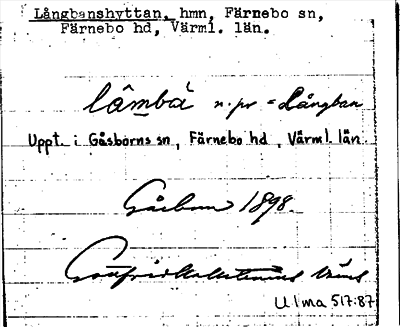 Långbanshyttan, hmn, Färnebo sn,
Färnebo hd, Värml. län.
lâmbà n.pr = Långban
Uppt. i Gåsborns sn, Färnebo hd, Värml. län.
Gåsborn 1898.
Ulma 517:87